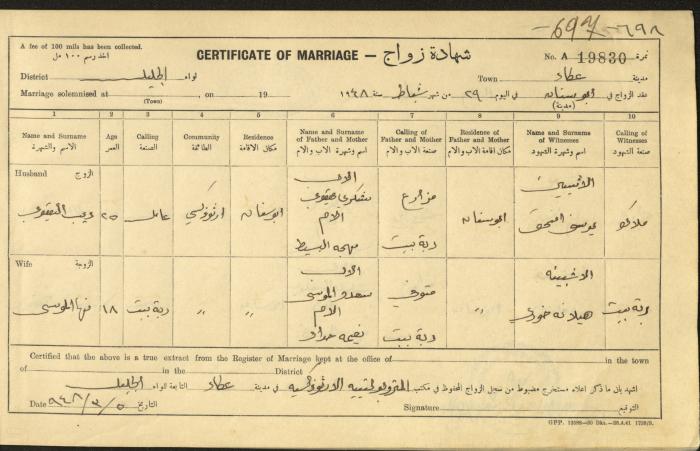 -69
٦٩٨
A fee of 100 mils has been collected.
اخذ رسم ١٠٠ مل
CERTIFICATE OF MARRIAGE — شهادة زواج
No. A 19830 نمرة
District الجليل لواء
Town عكاء مدينة
Marriage solemnised at , on 19
(Town)
عقد الزواج في ابوسنان في اليوم ٢٩ من شهر شباط سنة ١٩٤٨
(مدينة)
1 2 3 4 5 6 7 8 9 10
Name and Surname الاسم والشهرة
Age العمر
Calling الصنعة
Community الطائفة
Residence مكان الاقامة
Name and Surname of Father and Mother اسم وشهرة الاب والام
Calling of Father and Mother صنعة الاب والام
Residence of Father and Mother مكان اقامة الاب والام
Name and Surname of Witnesses اسم وشهرة الشهود
Calling of Witnesses صنعة الشهود
Husband الزوج
ديب اليعقوب
٢٥
عامل
ارثوذكسي
ابوسنان
الاب
شكري يعقوب
الام
مهجه البسيط
مزارع
ربة بيت
ابوسنان
الاشبين
يوسف اسحق
ملاك
Wife الزوجة
مها الموسى
١٨
ربة بيت
〃
〃
الاب
سعدو الموسى
الام
نعيمه حداد
متوفي
ربة بيت
〃
الاشبينه
هيلانه خوري
ربة بيت
Certified that the above is a true extract from the Register of Marriage kept at the office of in the town
of in the District
اشهد بان ما ذكر اعلاه مستخرج مضبوط من سجل الزواج المحفوظ في مكتب المتروبوليتيه الارثوذكسيه في مدينة عكاء التابعة للواء الجليل
Date ٩٤٨/٣/٥ التاريخ
Signature التوقيع